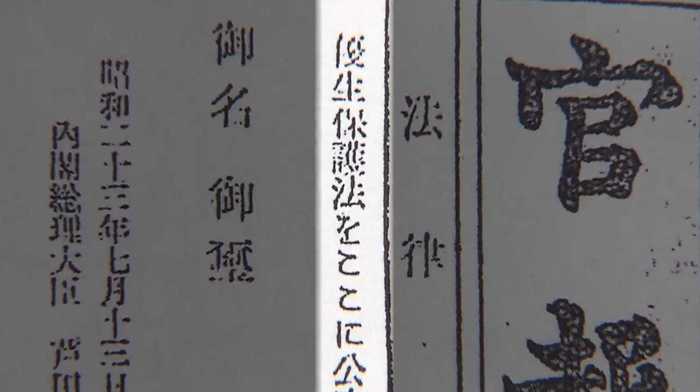 官報
法律
優生保護法をここに公
御名御璽
昭和二十三年七月十三日
内閣総理大臣 芦田